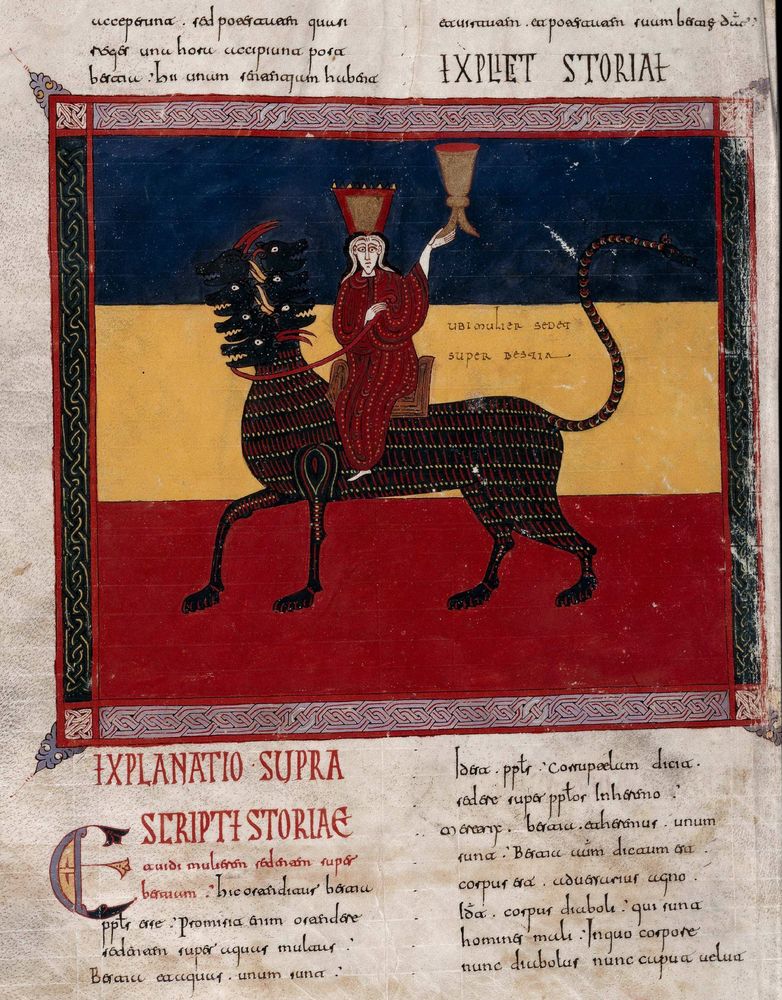 acceperunt. sed potestatem quasi
reges una hora accipiunt post
bestia : hii unum sententium habent
et virtutem. et potestatem suum bestie dāt
EXPLICIT STORIAE
UBI mulIER SEDET
SUPER BESTIA
EXPLANATIO SUPRA
SCRIPTE STORIAE
Et vidi mulierem sedentem super
bestiam : hic ostenditur bestia
ppls esse : Promisit enim ostendere
sedentem super aquas multas :
Bestia et aquas. unum sunt :
Id est. ppls : Corruptelam dicit.
sedere super pplos In heremo :
Meretrix. bestia. et heremus. unum
sunt : Bestia dictum est.
corpus est. adversarius agno.
corpus diaboli : qui sunt
homines mali : In quo corpore
nunc diabolus nunc caput velut